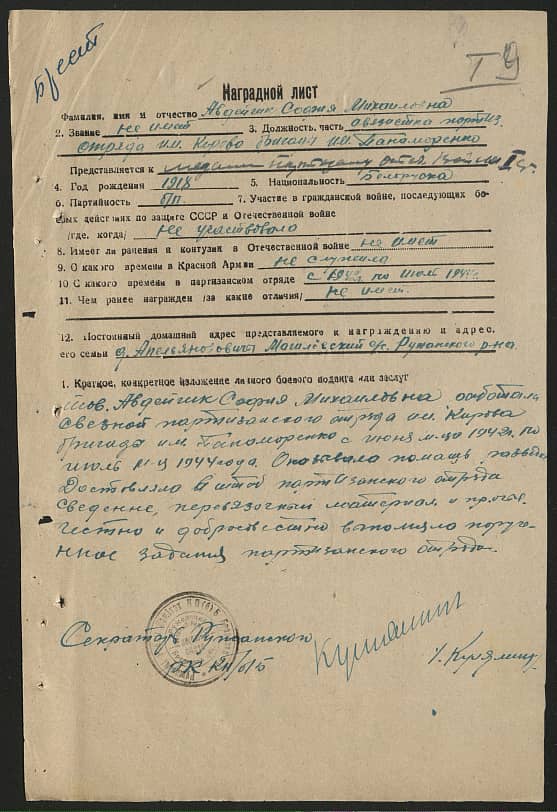 Брест
Наградной лист
Фамилия, имя и отчество Авдейчик София Михайловна
2. Звание не имеет 3. Должность, часть связистка партиз.
отряда им. Кирова бригады им. Панаморенко
Представляется к медали Партизану Отеч. Войны II ст.
4. Год рождения 1918 5. Национальность Белоруска
6. Партийность б/п. 7. Участие в гражданской войне, последующих бо-
евых действиях по защите СССР и Отечественной войне
/где, когда/ не участвовала
8. Имеет ли ранения и контузии в Отечественной войне не имеет
9. С какого времени в Красной Армии не служила
10. С какого времени в партизанском отряде с по июль 1944г.
11. Чем ранее награжден /за какие отличия/ не имеет.
12. Постоянный домашний адрес представляемого к награждению и адрес
его семьи д. Михалевский с/с. Ружанского р-на
1. Краткое, конкретное изложение личного боевого подвига или заслуг
тов. Авдейчик София Михайловна работала
связной партизанского отряда им. Кирова
бригада им. Панаморенко с июня м-ца 1942г. по
июль м-ц 1944 года. Оказывала помощь
Доставляла в штаб партизанского отряда
сведение, перевязочный материал и прочее.
честно и добросовестно выполняла поруче-
нное задания партизанского отряда.
Секретарь Ружанского
РК КП/б/Б